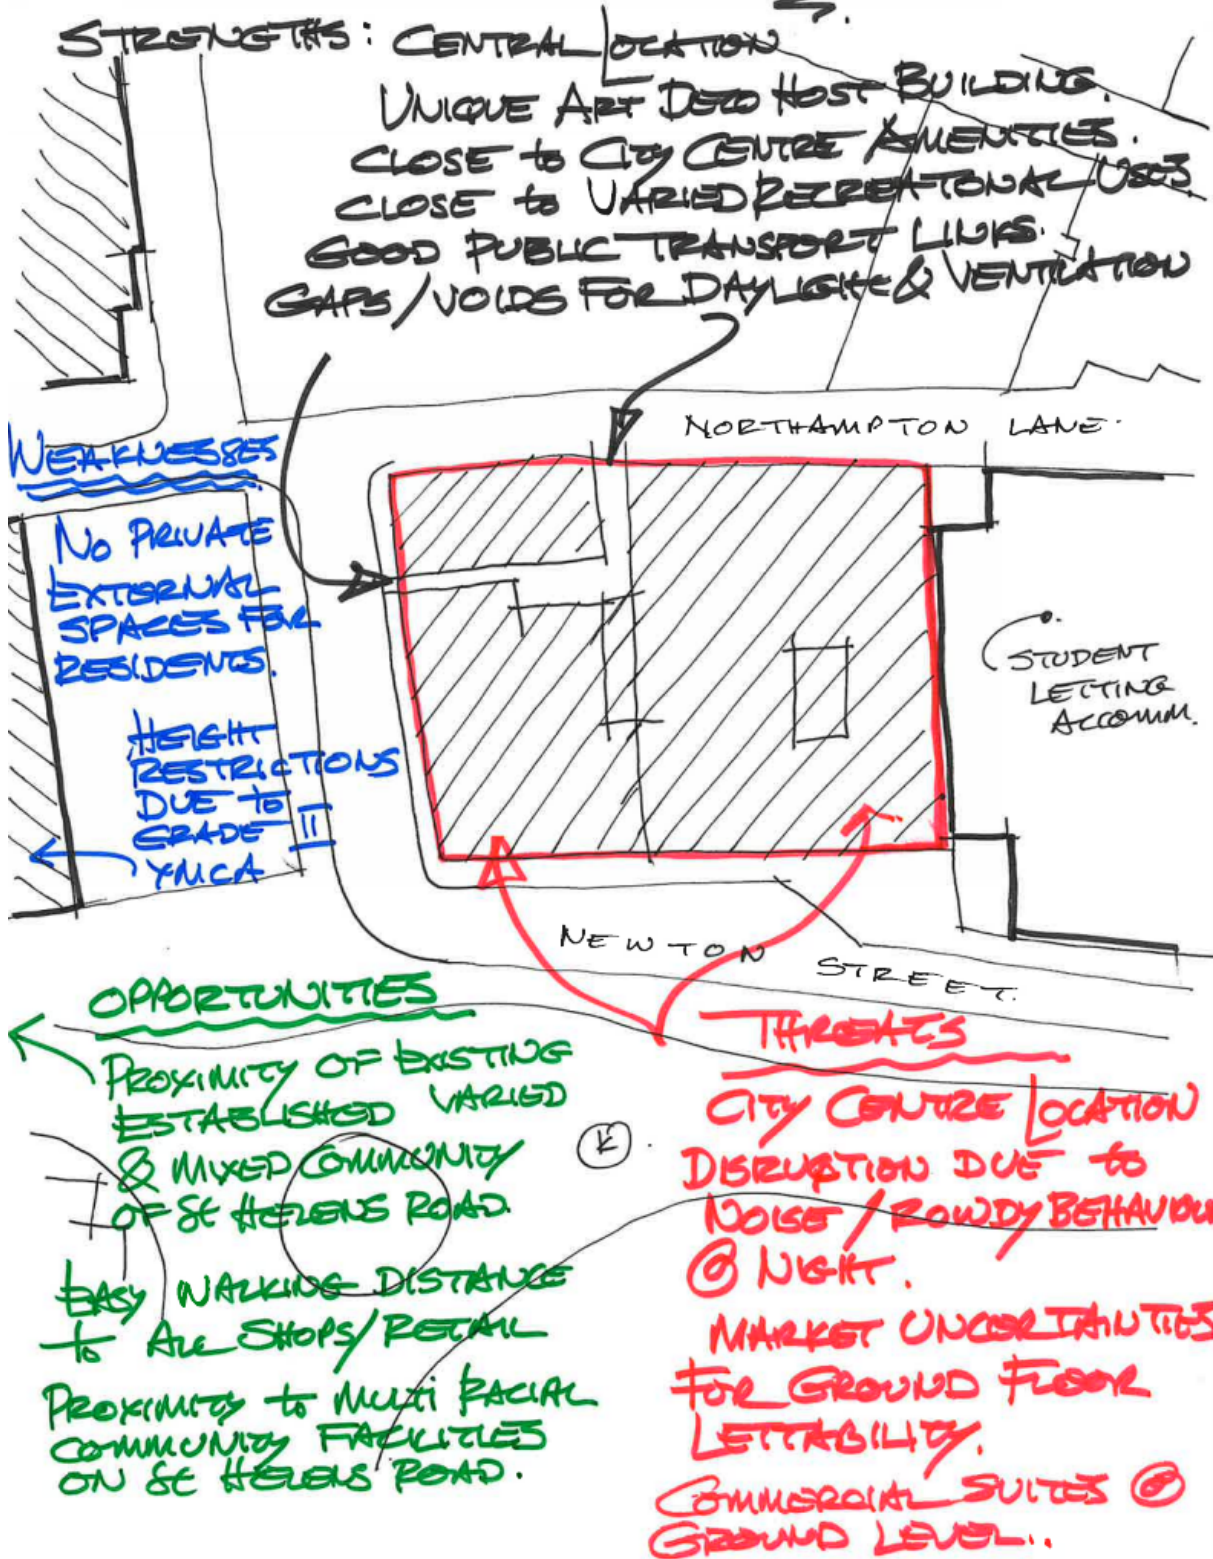 STRENGTHS: CENTRAL LOCATION
UNIQUE ART DECO HOST BUILDING.
CLOSE to CITY CENTRE AMENITIES.
CLOSE to VARIED RECREATONAL USES
GOOD PUBLIC TRANSPORT LINKS.
GAPS/VOIDS FOR DAYLIGHT & VENTILATION
NORTHAMPTON LANE.
WEAKNESSES
NO PRIVATE
EXTERNAL
SPACES FOR
RESIDENTS.
HEIGHT
RESTRICTIONS
DUE to
GRADE II
YMCA
STUDENT
LETTING
ACCOMM.
NEWTON STREET.
OPPORTUNITIES
PROXIMITY OF EXISTING
ESTABLISHED VARIED
& MIXED COMMUNITY
OF St HELENS ROAD.
EASY WALKING DISTANCE
to ALL SHOPS/RETAIL
PROXIMITY to MULTI RACIAL
COMMUNITY FACILITIES
ON St HELENS ROAD.
K
THREATS
CITY CENTRE LOCATION
DISRUPTION DUE to
NOISE/ROWDY BEHAVIOUR
@ NIGHT.
MARKET UNCERTAINTIES
FOR GROUND FLOOR
LETTABILITY.
COMMERCIAL SUITES @
GROUND LEVEL..